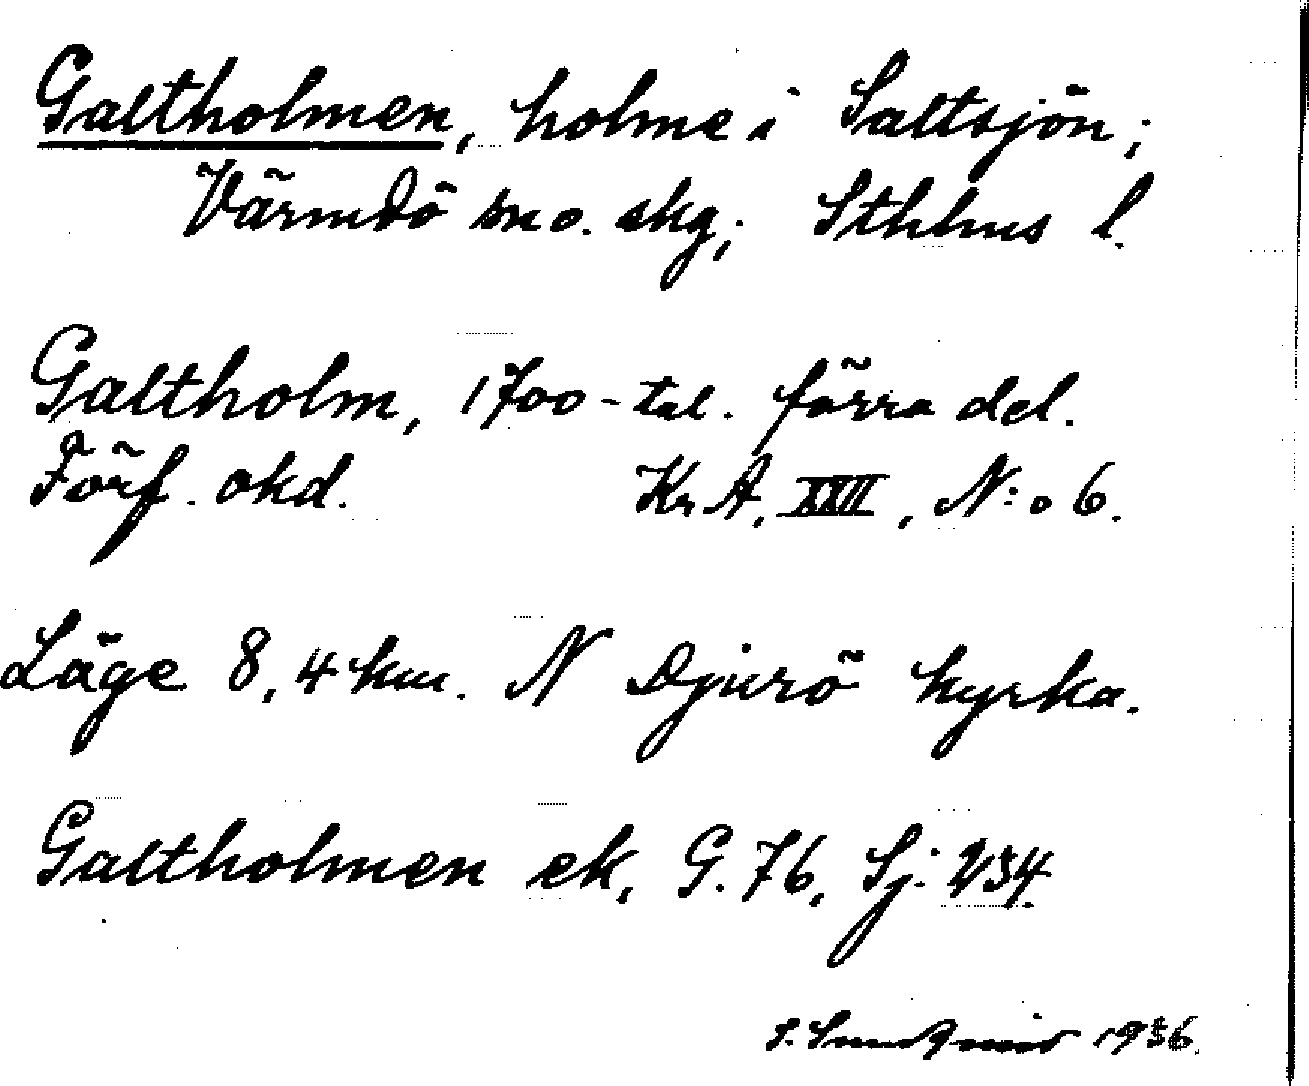 Galtholmen, holme i Saltsjön;
Värmdö sn o. skg; Sthlms l.
Galtholm, 1700-tal. förra del.
Förf. okd. Kr A, XXII, N:o 6.
Läge 8,4 km. N Djurö kyrka.
Galtholmen ek, G. 76, Sj: 234.
S. Sundqvist 1936.